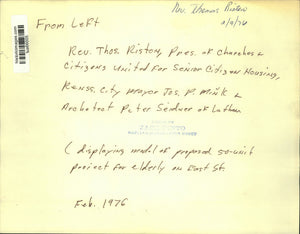 Rev. Thomas Riston
2/9/76
From Left
Rev. Thos. Riston, Pres. of Churches &
Citizens United for Senior Citizen Housing,
Renss. City Mayor Jos. P. Mink &
Architect Peter Seidner of Latham
( displaying model of proposed 50-unit
project for elderly on East St.
Feb. 1976